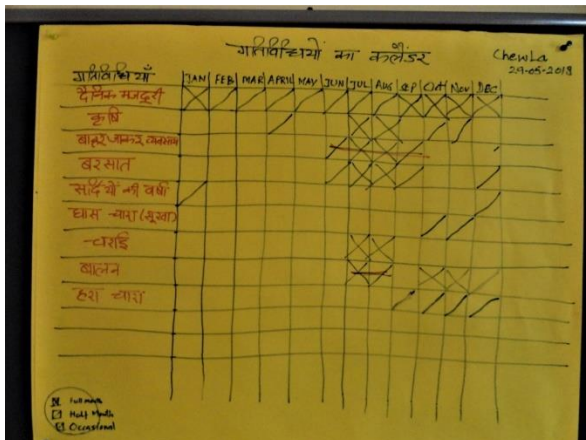 गतिविधियों का कलैंडर
Chewla
29-05-2018
गतिविधियाँ JAN FEB MAR APRIL MAY JUN JUL AUG SEP Oct Nov DEC
दैनिक मजदूरी
कृषि
बाहर जाकर व्यवसाय
बरसात
सर्दियों की वर्षा
घास चारा (सूखा)
चराई
बालन
हरा चारा
Full month
Half Month
Occasional